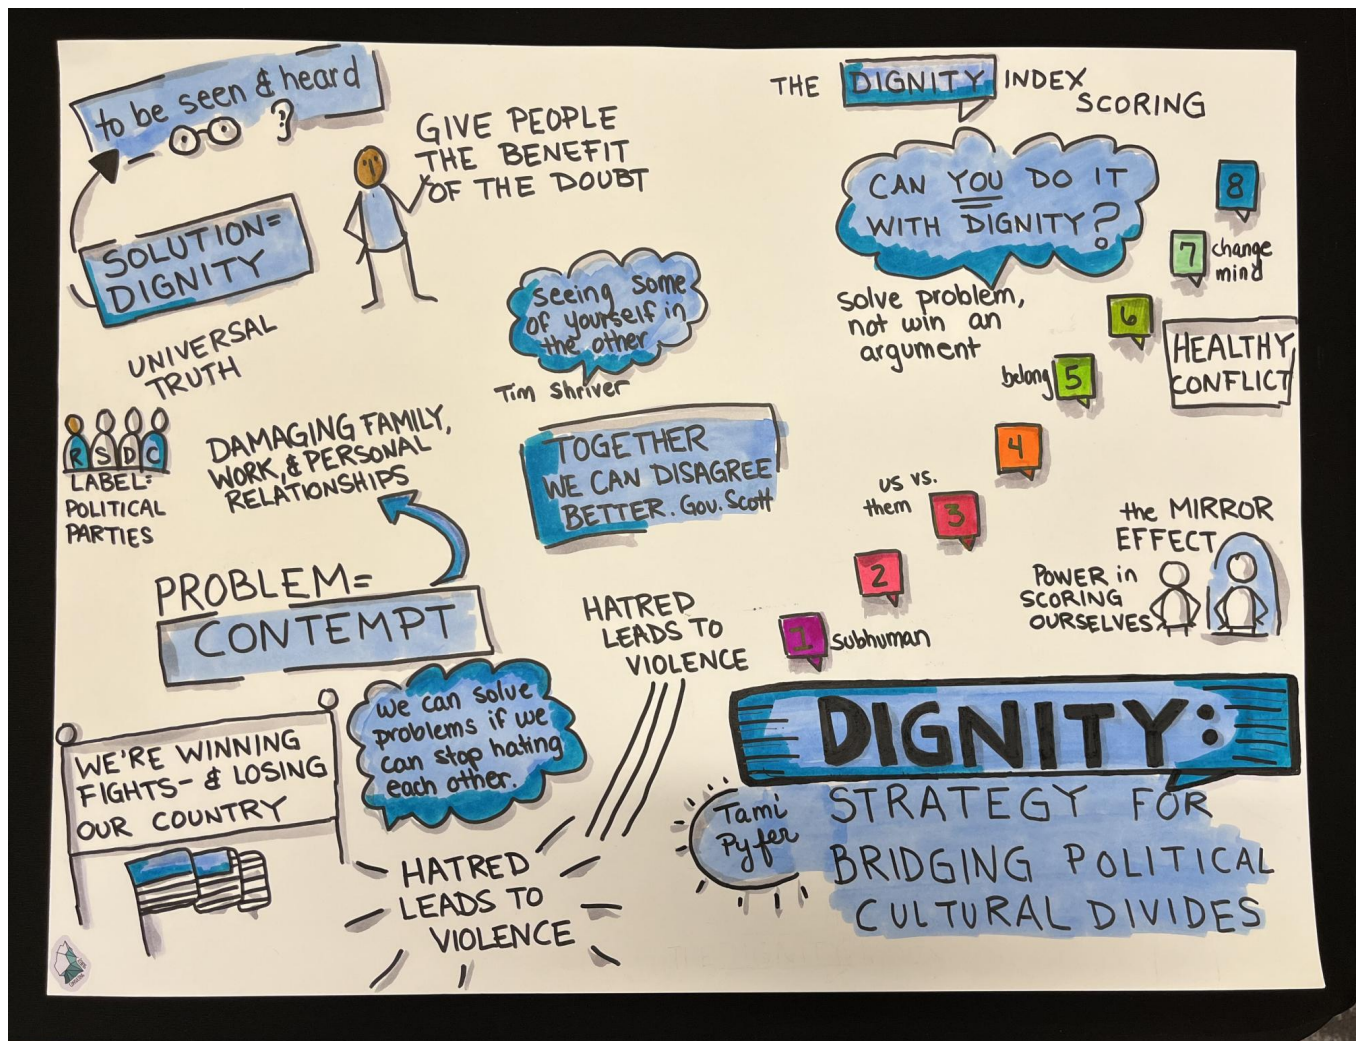 to be seen & heard
?
GIVE PEOPLE
THE BENEFIT
OF THE DOUBT
SOLUTION=
DIGNITY
UNIVERSAL
TRUTH
seeing some
of yourself in
the other
Tim Shriver
R S D C
LABEL:
POLITICAL
PARTIES
DAMAGING FAMILY,
WORK, & PERSONAL
RELATIONSHIPS
TOGETHER
WE CAN DISAGREE
BETTER. Gov. Scott
PROBLEM=
CONTEMPT
HATRED
LEADS TO
VIOLENCE
we can solve
problems if we
can stop hating
each other.
WE'RE WINNING
FIGHTS- & LOSING
OUR COUNTRY
HATRED
LEADS TO
VIOLENCE
THE DIGNITY INDEX
SCORING
CAN YOU DO IT
WITH DIGNITY?
solve problem,
not win an
argument
8
7 change
mind
6
HEALTHY
CONFLICT
belong 5
4
us vs.
them 3
2
1 subhuman
the MIRROR
EFFECT
POWER in
SCORING
OURSELVES
DIGNITY:
Tami
Pyfer
STRATEGY FOR
BRIDGING POLITICAL
CULTURAL DIVIDES